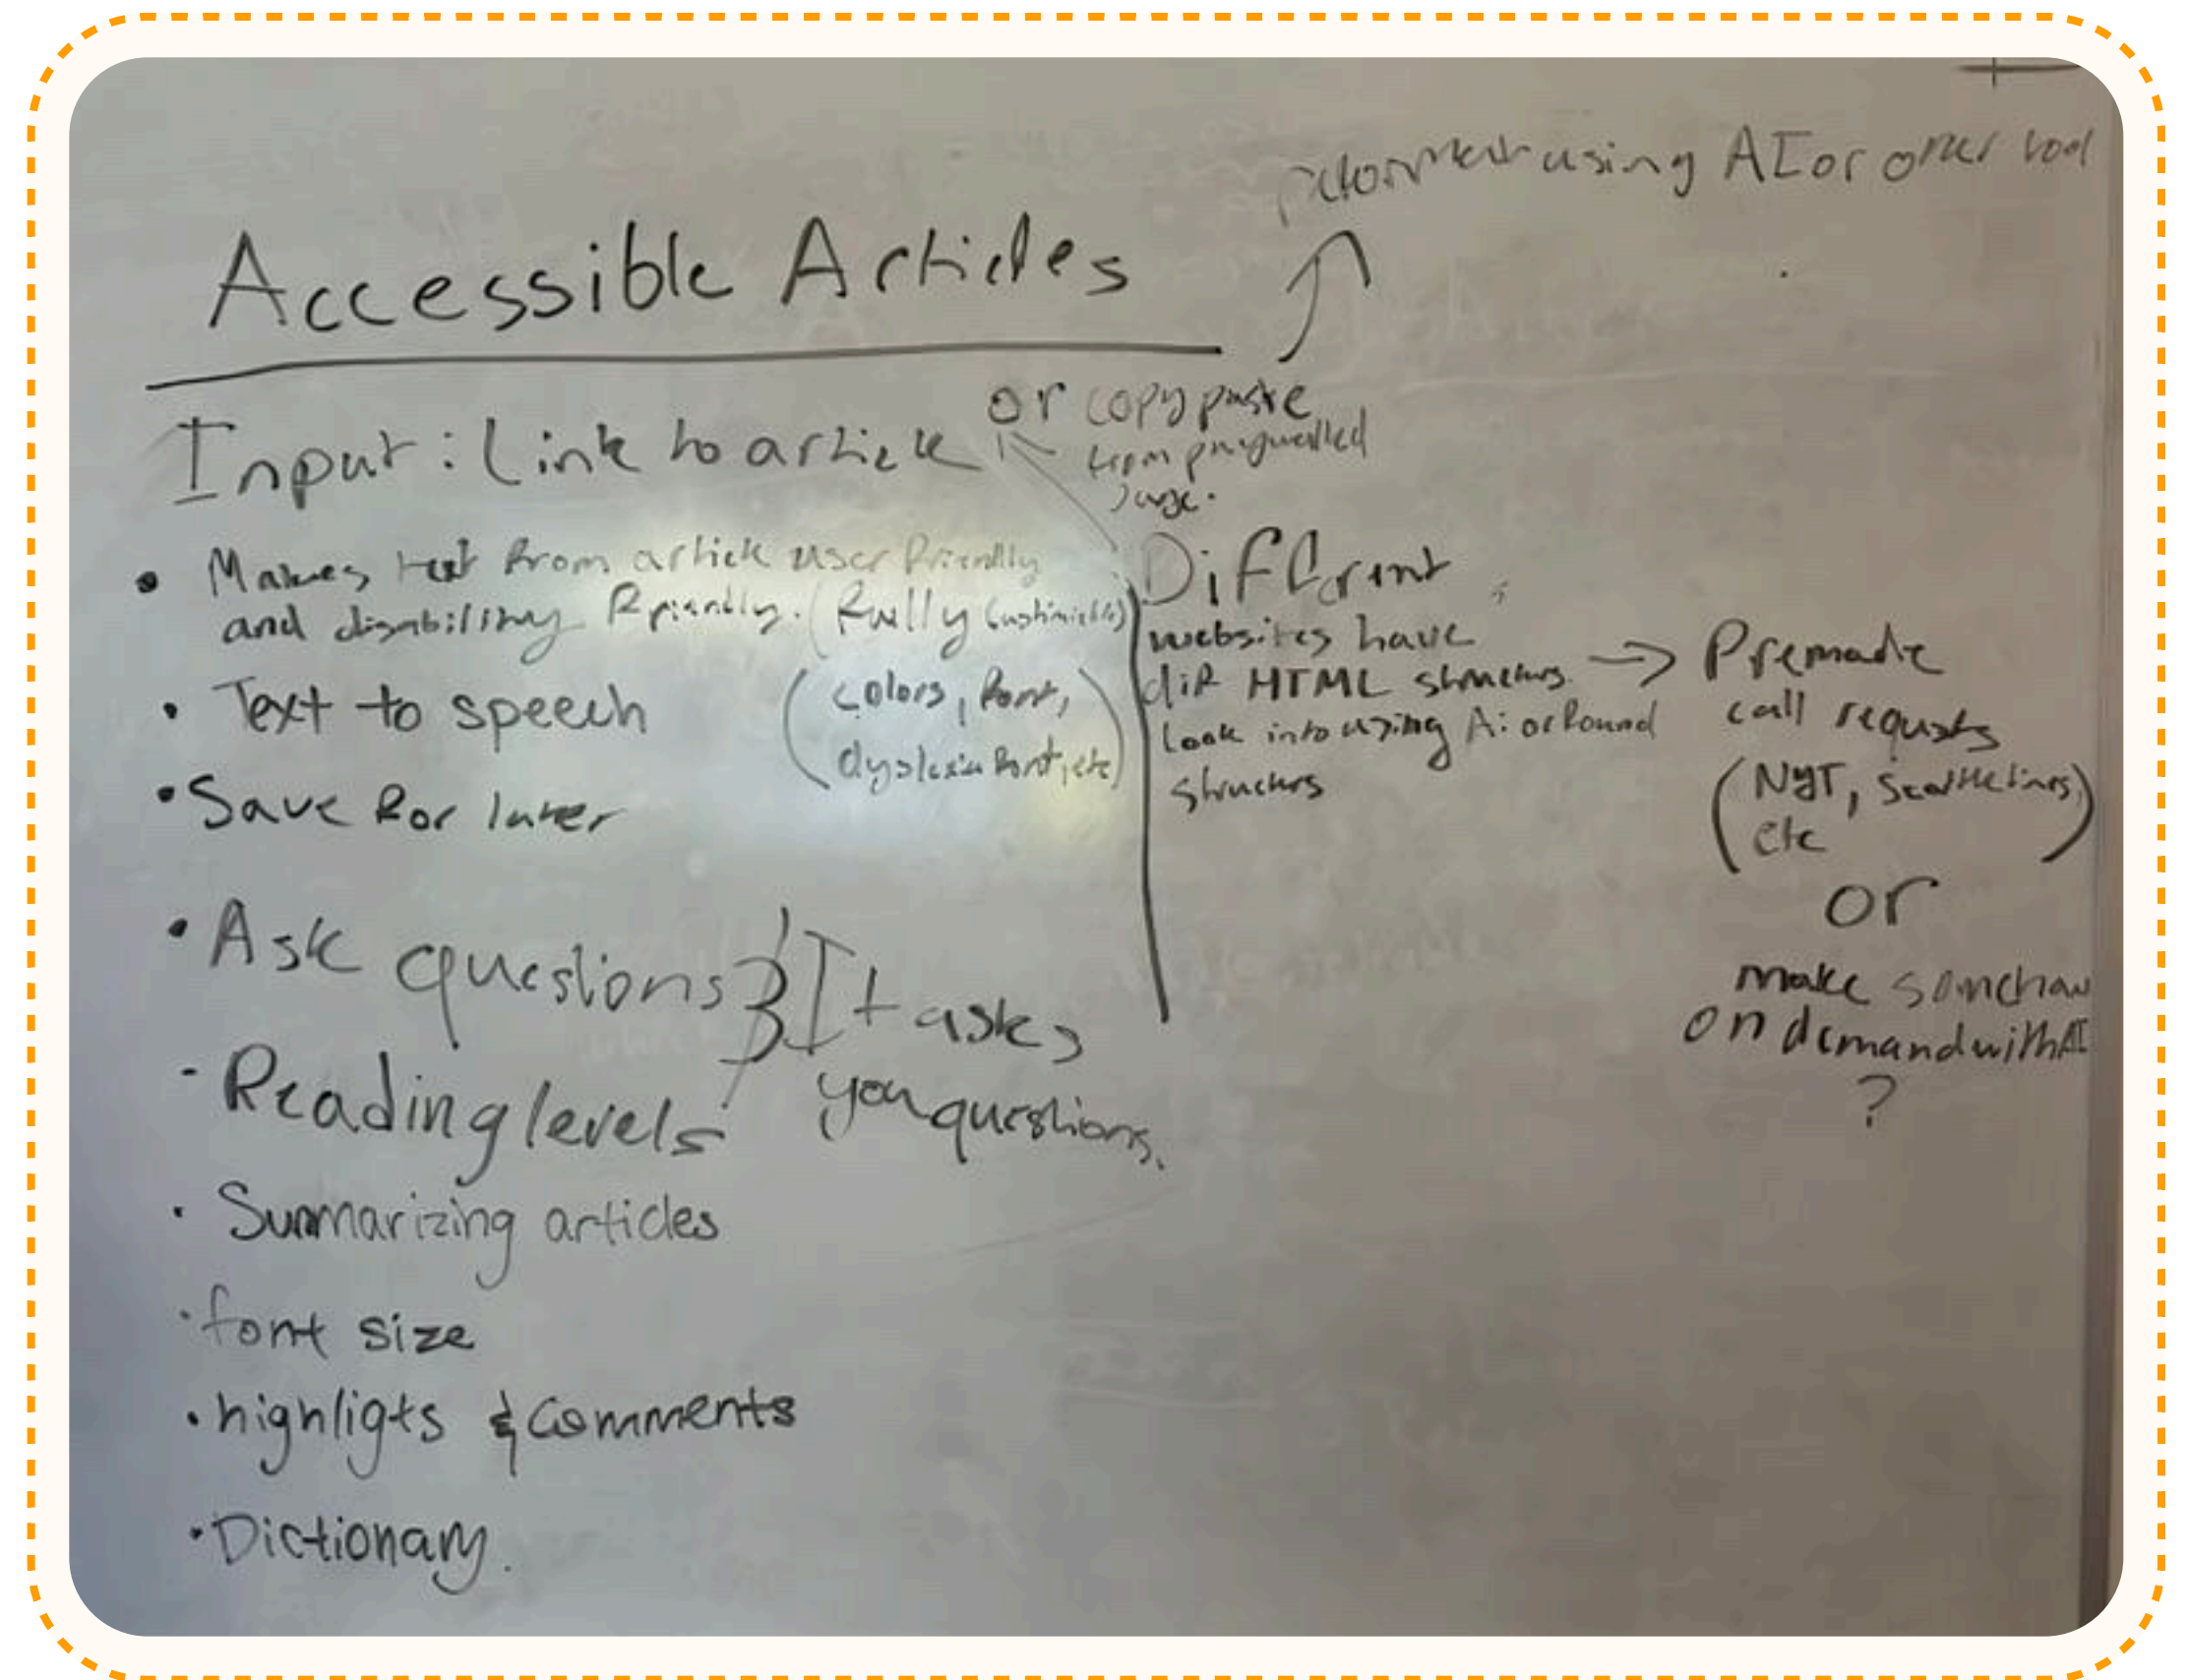 using AI or other tool
Accessible Articles
Input: Link to article or copy paste
from paywalled
page.
• Makes text from article user friendly
and disability friendly. (fully customizable)
(colors, font,
dyslexia font, etc)
• Text to speech
• Save for later
• Ask questions } It asks
you questions.
- Reading levels
• Summarizing articles
• font size
• highligts & Comments
• Dictionary.
Different
websites have
dif HTML structurs. → Premade
look into using Ai or found
structurs
call requsts
(NYT, Seattle times,
etc)
or
make somehow
on demand with AI
?